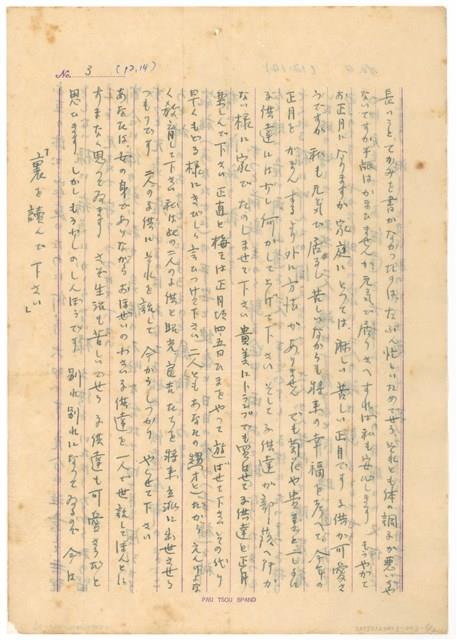 No. 3 (12.14)
長いことてがみを書かなかったのは、たぶん忙しいためでせう。それとも体の調子が悪いのぢや
ないですか 手紙はかまひませんが元気で居りさへすれば私も安心します もうやがて
お正月になりますが 家庭にとっては、淋しい苦しい正月です 子供が可愛さ
うですが 私も元気で居るし、苦しいながらも将来の幸福を考へて、今年の
正月を がまんするより外に方法がありません でも菊花や貴美と二しょに
子供達には少し何かしてあげて下さい そして子供達が部落へ行か
ない様に 家でたのしませて下さい 貴美にトランプでも買はせて子供達と正月
楽しんで下さい 正直と梅ては正月は四、五日ひまをやって 遊ばせて下さい その代り
早くもどる様にきびしく言ひつけて下さい 二人ともあなたの だから えんりょな
く教育して下さい 私は此の二人の子供と昭光 たちを 将来立派に出世させる
つもりです 二人の子供に それを説して 今からしっかり やらせて下さい
あなたは、女の身でありながら おほぜいの 子供達を 一人で世話してほんとに
すまなく思ってゐます さぞ生活も苦しいでせう 子供達も可愛さうだと
思ひます しかしもう少しのしんぼうです 別れ別れになってゐるのも 今は
「裏を読んで下さい」
PAU TSOU SPAND